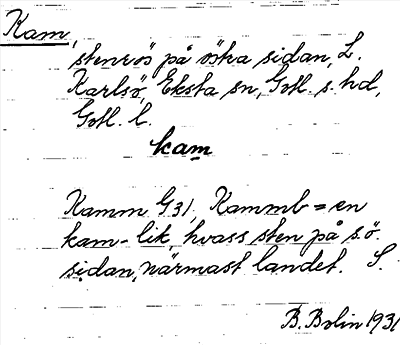 Kam,
stenrös på östra sidan, L.
Karlsö, Eksta sn, Gotl. s. hd,
Gotl. l.
kam
Kamm G31, Kammb = en
kam-lik, hvass sten på s.ö.
sidan, närmast landet. S.
B. Bolin 1931